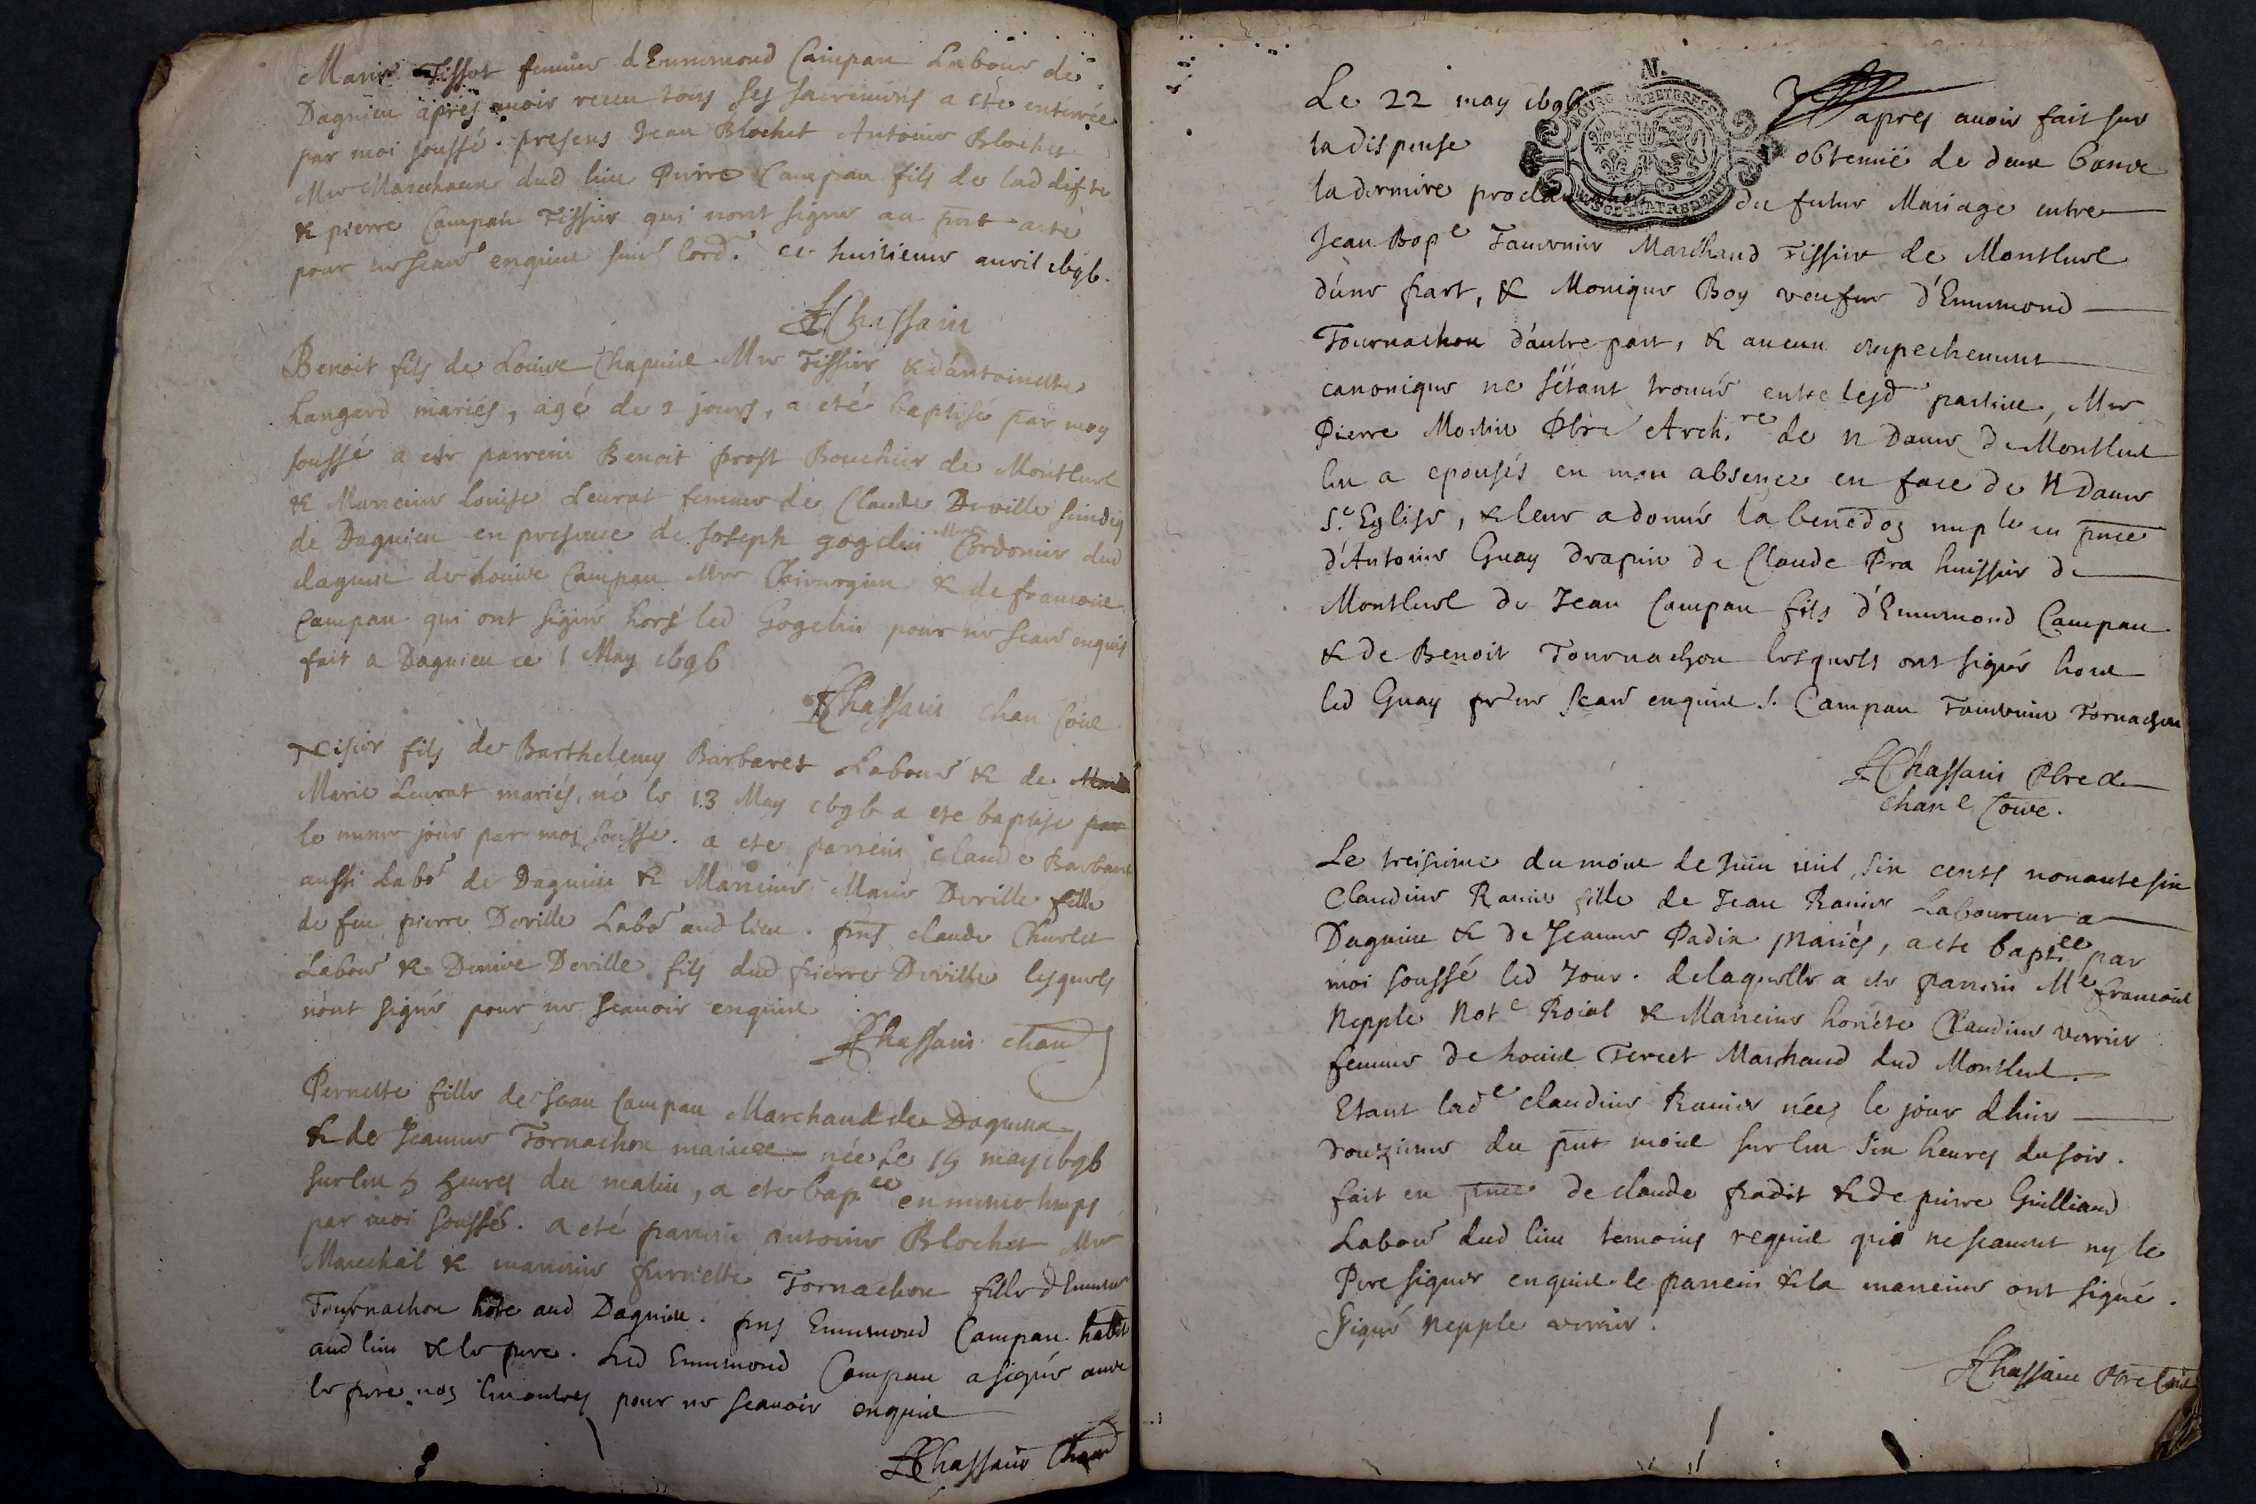 Marie Tissot femme d'Emmmond Campan Labour de
Dagnieu apres avoir receu tous ses sacremens a ete enterrée
par moi soussé. presens Jean Blochet Antoine Blochet
Mre Marechaux dud lieu Pierre Campan fils de lad difte
& pierre Campan Tissier qui nont signé au pnt acte
pour ne scavoir enquis suivt lord.e ce huitieme avril 1696.
FChassain
Benoit fils de Louis Chapuis Mre Tissier & d'antoinette
Langard mariés, agé de 2 jours, a eté baptisé par moy
soussé a eté parrein Benoit prost Boucher de Montluel
& Marreine Louise Leurat femme de Claude Deville sindiq
de Dagnieu en presence de Joseph gogelin Mre Cordonier dud
dagnieu de Louis Campan Mre Chirurgien & de francois
Campan qui ont signé hors led Gogelin pour ne scavoir enquis
fait a Dagnieu ce 1 May 1696
FChassain chan Coué
fils de Barthelemy Barbaret Labour & de
Marie Leurat mariés, né le 13 May 1696 a ete baptisé par
le meme jour par moi soussé. a ete parrein Claude Barbaret
aussi Labor de Dagnieu & Marreine Marie Deville fille
de feu pierre Deville Labor aud lieu. pns claude Churlet
Labour & Denise Deville fils dud pierre Deville lesquels
n'ont signé pour ne scavoir enquis
FChassain chan
Pernette fille de Jean Campan Marchand de Dagnieu
& de Jeanne Tornachon mariés née le 19 may 1696
sur les 5 heures du matin, a ete bap.ee en meme temps
par moi soussé. a eté parrein antoine Blochet Mre
Marechal & marreine pernette Tornachon fille d'Emmond
Tournachon hote aud Dagnieu. pns Emmmond Campan habit
aud lieu & le pere. Led Emmmond Campan a signé avec
le pere, nos les autres pour ne scavoir enquis
FChassain Chan
Le 22 may 1696 apres avoir fait sur
la dispense obtenue de deux bans
la derniere proclamation du futur Mariage entre
Jean Bap.e Tavernier Marchand Tissier de Montluel
d'une part, & Monique Boy veufve d'Emmmond
Tournachon d'autre part, & aucun empechement
canonique ne s'étant trouvé entre lesd parties, Mre
Pierre Morlin Pbre Archi.re de N Dame de Montluel
les a epousés en mon absence en face de N Dame
S.e Eglise, & leur a donné la benedon nup.le en pnce
d'Antoine Guay drapier de Claude Pra huissier de
Montluel de Jean Campan fils d'Emmmond Campan
& de Benoit Tournachon lesquels ont signé hors
led Guay pr ne scavoir enquis S. Campan Tavernier Tornachon
FChassain Pbre &
chan.e Coué.
Le treisieme du mois de Juin mil six cents nonante six
Claudine Ravier fille de Jean Ravier Laboureur a
Dagnieu & de Jeanne Padin Mariés, a ete bapt.ee par
moi soussé led Jour. de laquelle a ete parrein Me francois
Nepple Not.e Roial & Marreine honéte Claudine verrier
femme de Louis Tercet Marchand dud Montluel.
Etant lad.e claudine Ravier née le jour d'hier
douzieme du pnt mois sur les six heures du soir.
fait en pnce de claude pradit & de pierre Guilliand
Labour dud lieu temoins requis qui ne scavent ny le
Pere signer enquis le parrein & la marreine ont signé.
Signé Nepple verrier.
FChassain Pbre Coué